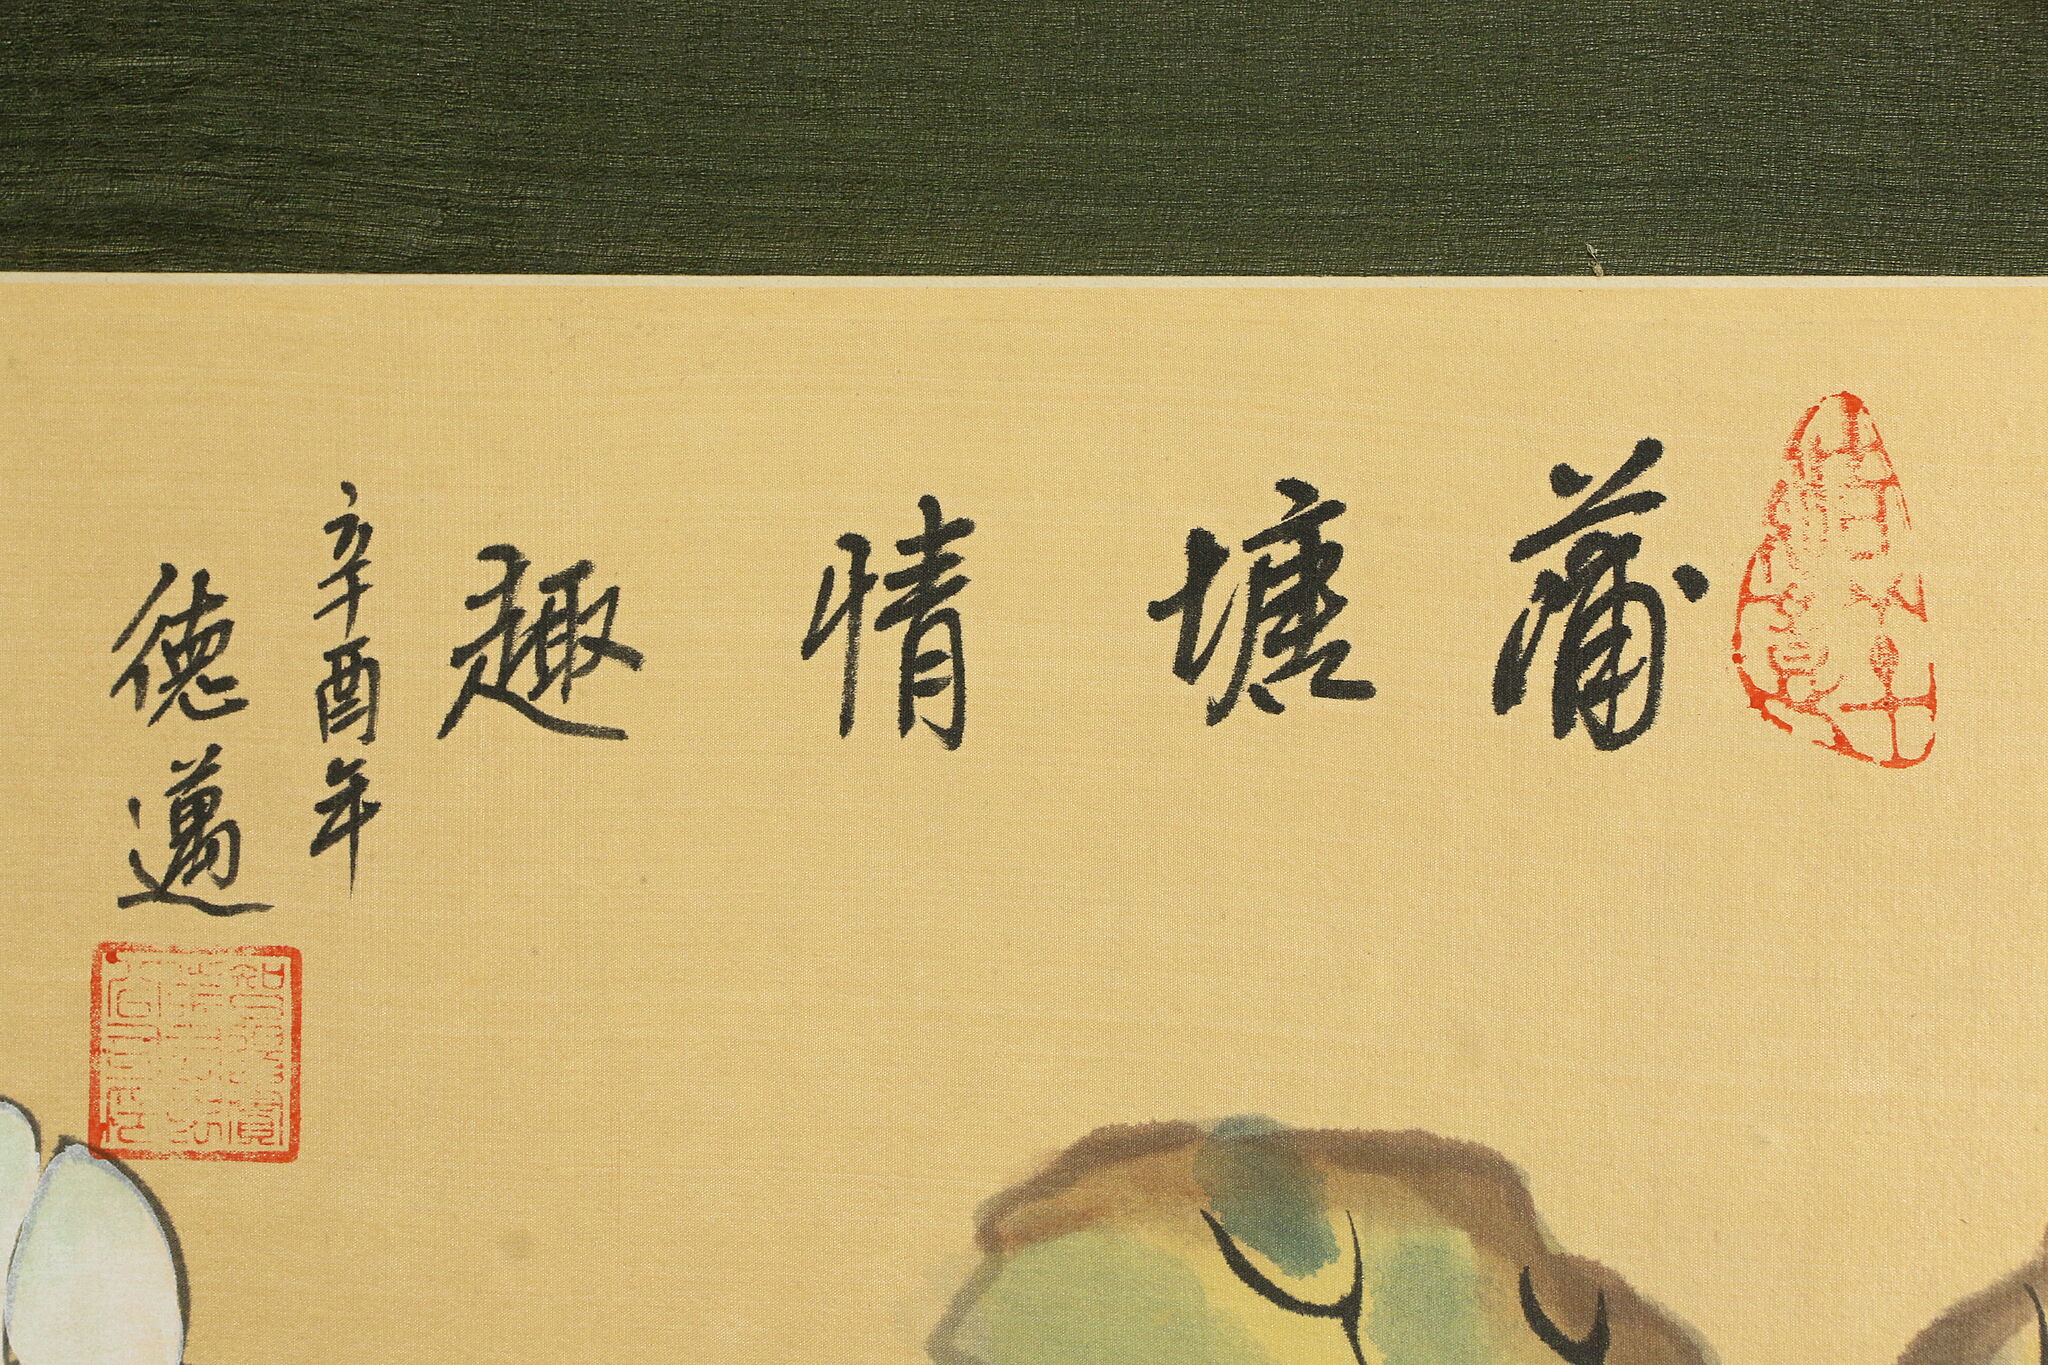 蒲塘情趣
辛酉年
德邁